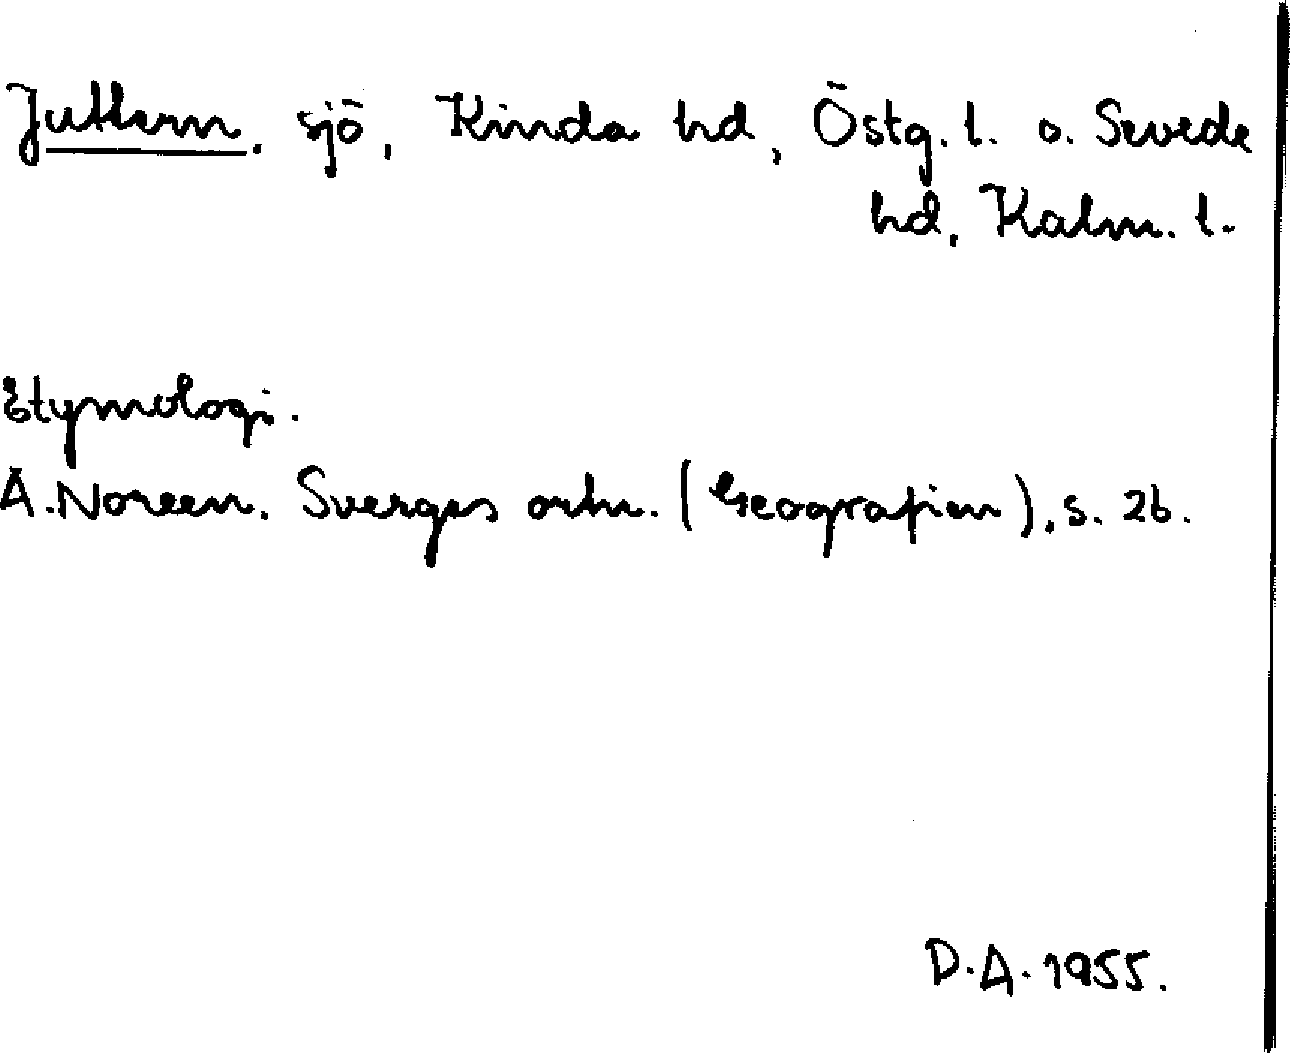 Juttern, sjö, Kinda hd, Östg. l. o. Sevede
hd, Kalm. l.
Etymologi.
A. Noreen. Sverges ortn. (Geografien), s. 26.
D.A. 1955.